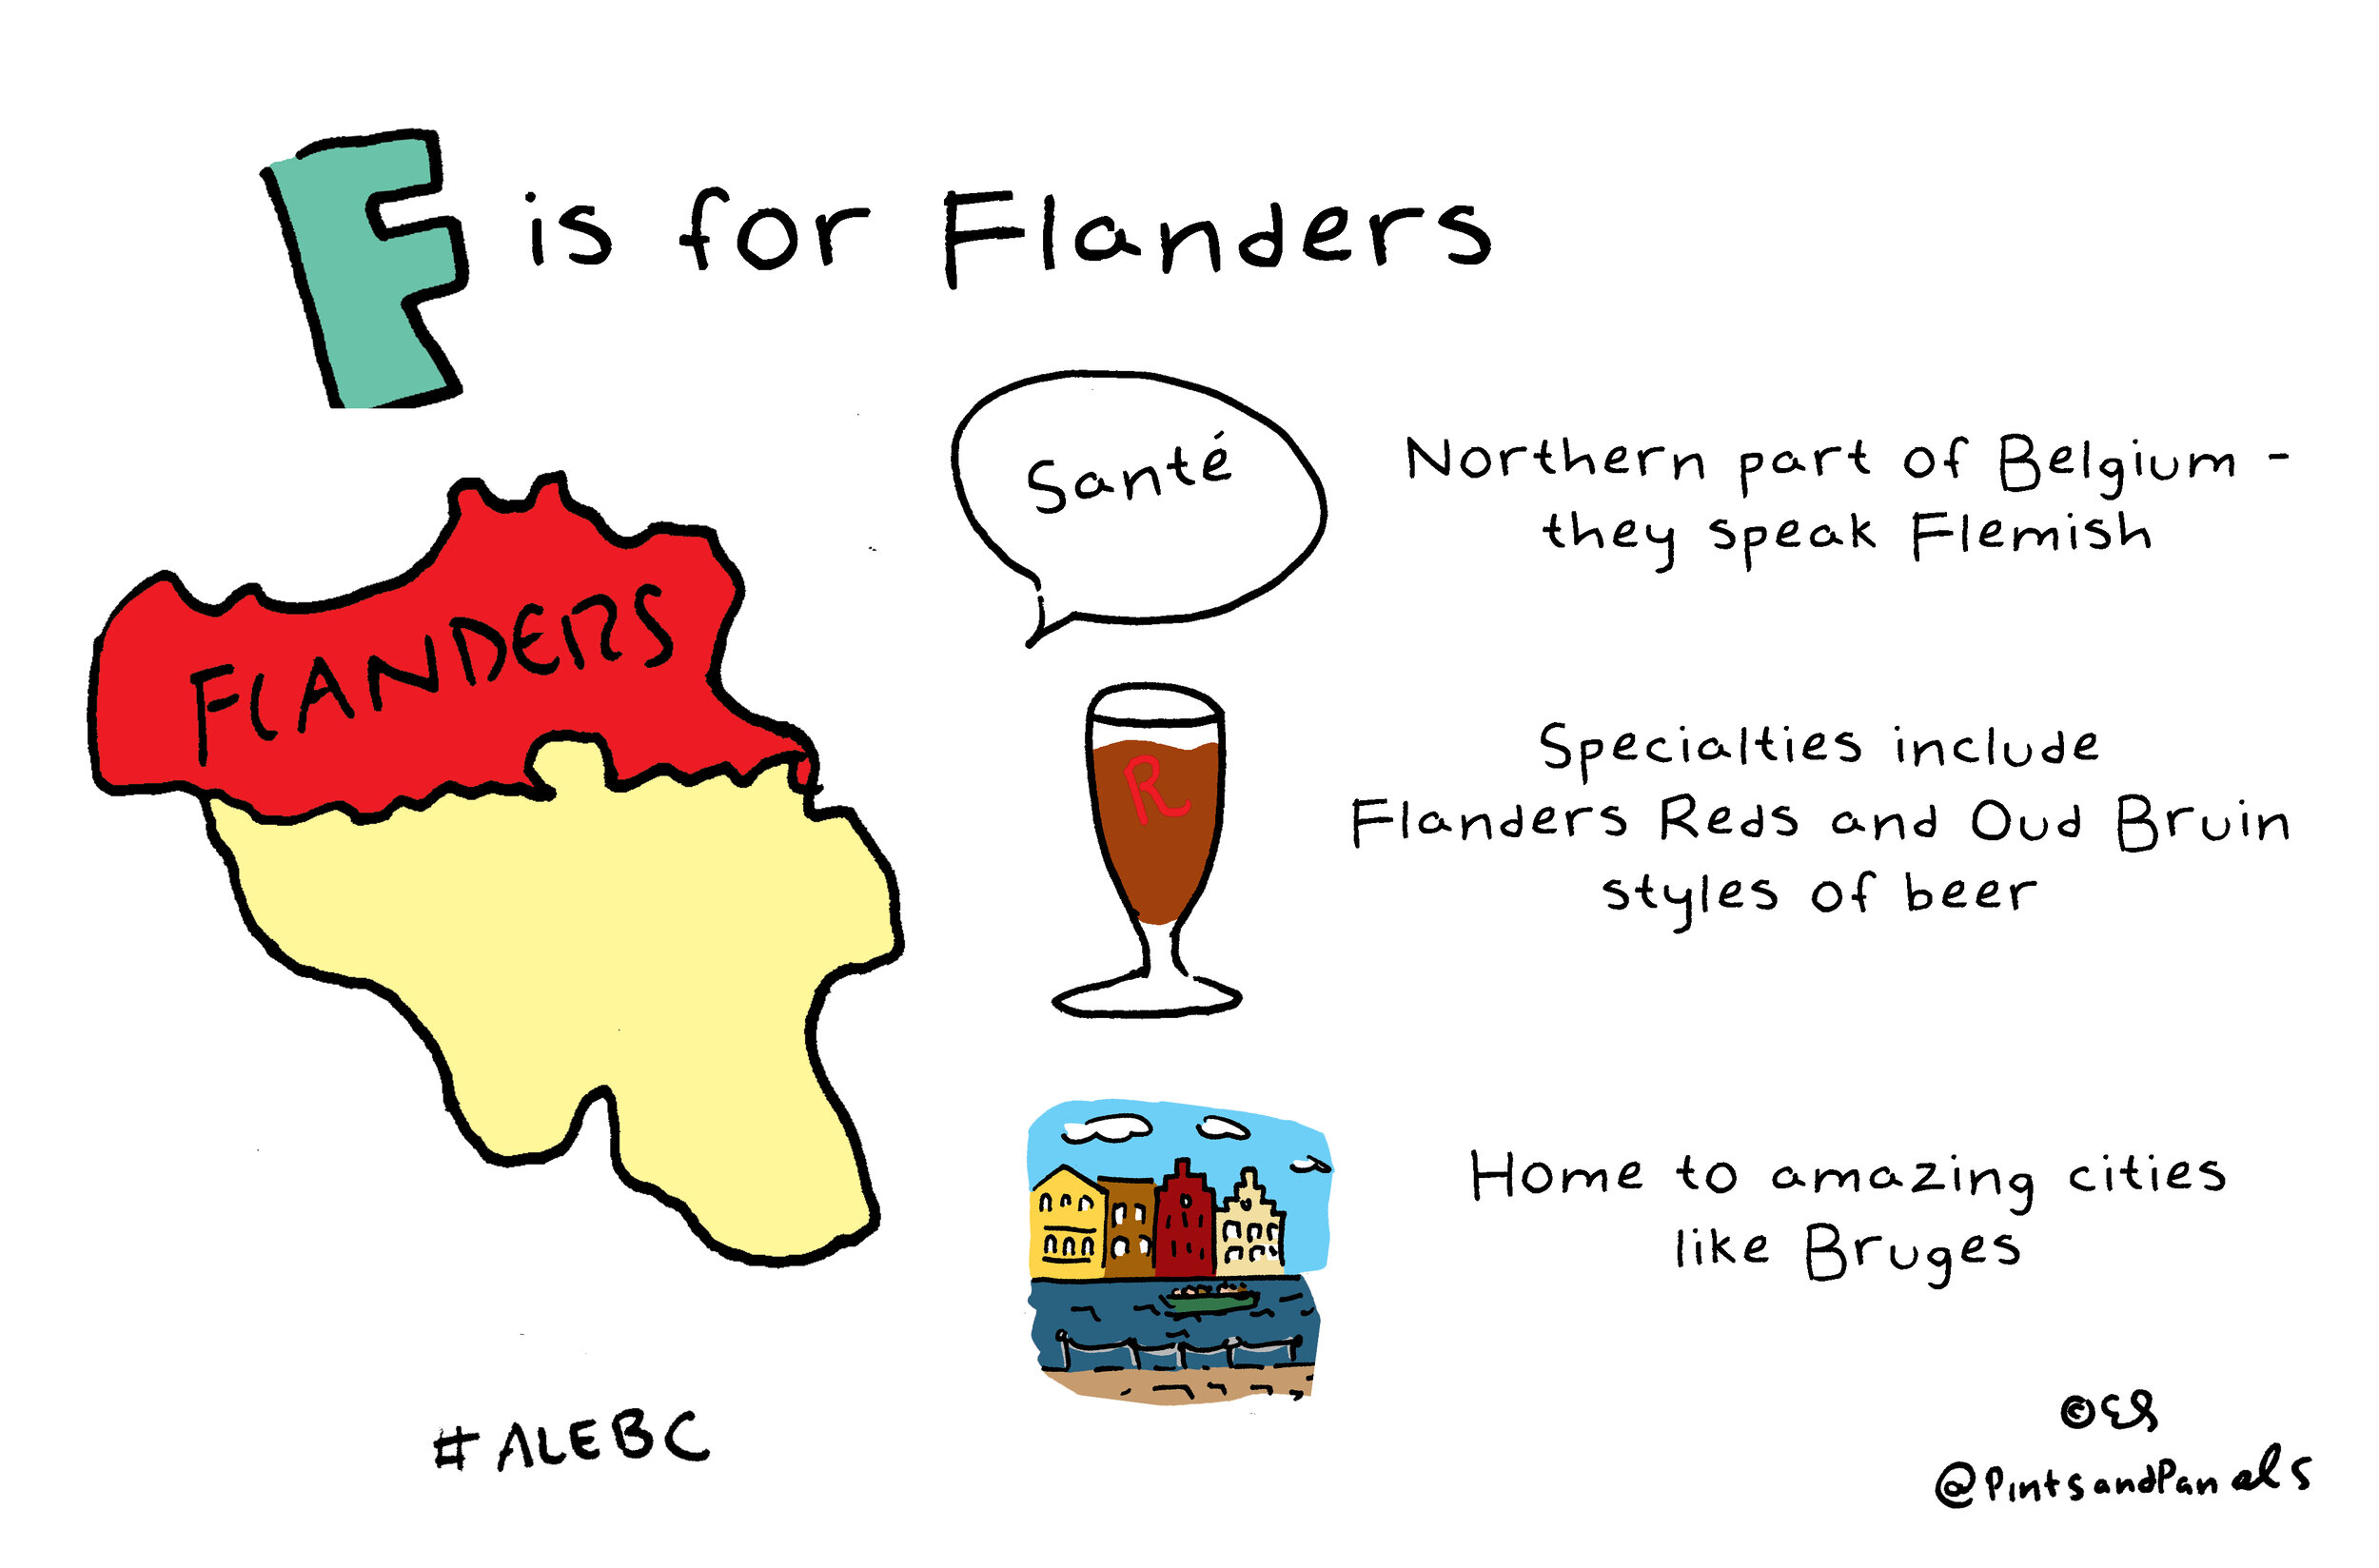 F is for Flanders
Santé
Northern part of Belgium -
they speak Flemish
FLANDERS
R
Specialties include
Flanders Reds and Oud Bruin
styles of beer
Home to amazing cities
like Bruges
#ALEBC
©ES
@PintsandPanels